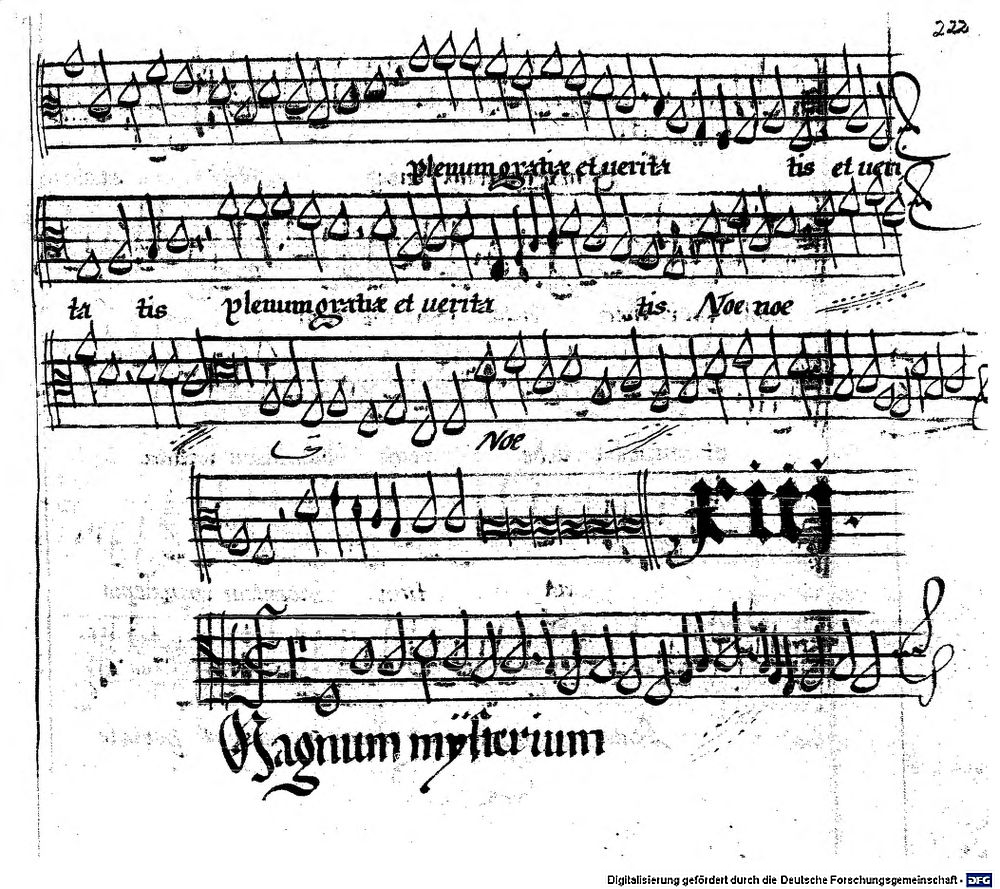 222
plenum gratiæ et uerita tis et ueri
ta tis plenum gratiæ et uerita tis Noe noe
Noe
Magnum mysterium
Digitalisierung gefördert durch die Deutsche Forschungsgemeinschaft - DFG